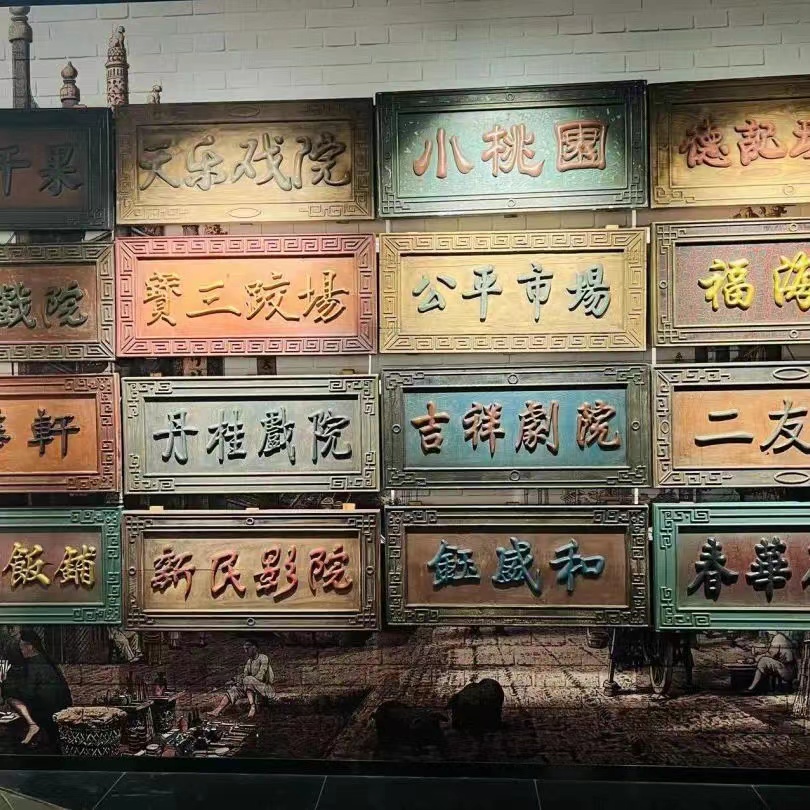 干果
天乐戏院
小桃園
德記
戲院
寶三跤場
公平市場
福海
軒
丹桂戲院
吉祥劇院
二友
飯鋪
新民影院
鈺盛和
春華